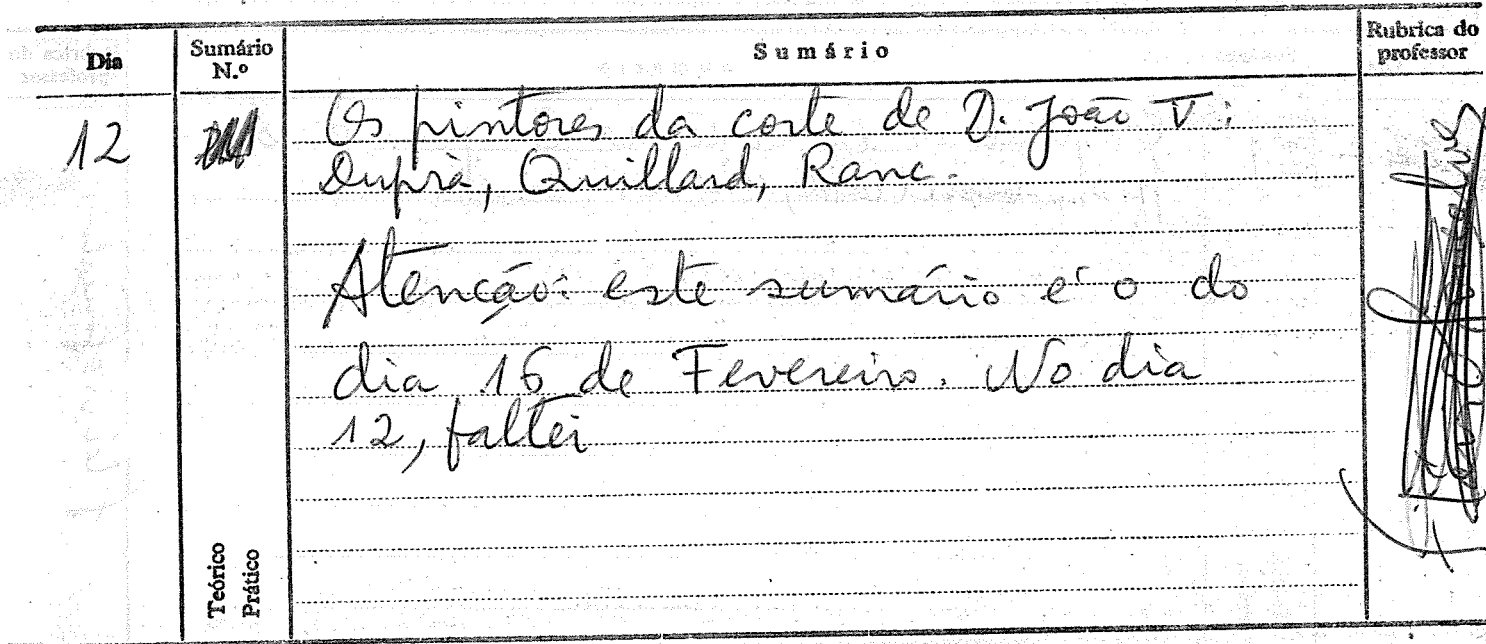 Dia
Sumário N.º
Sumário
Rubrica do professor
12
Os pintores da corte de D. João V:
Duprà, Quillard, Ranc.
Atenção: este sumário é o do
dia 16 de Fevereiro. No dia
12, faltei
Teórico
Prático